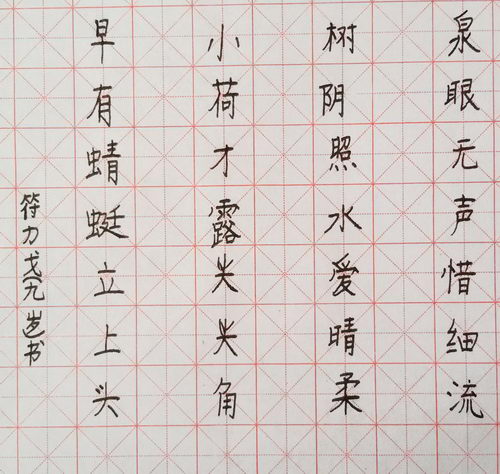 泉眼无声惜细流
树阴照水爱晴柔
小荷才露尖尖角
早有蜻蜓立上头
符力书